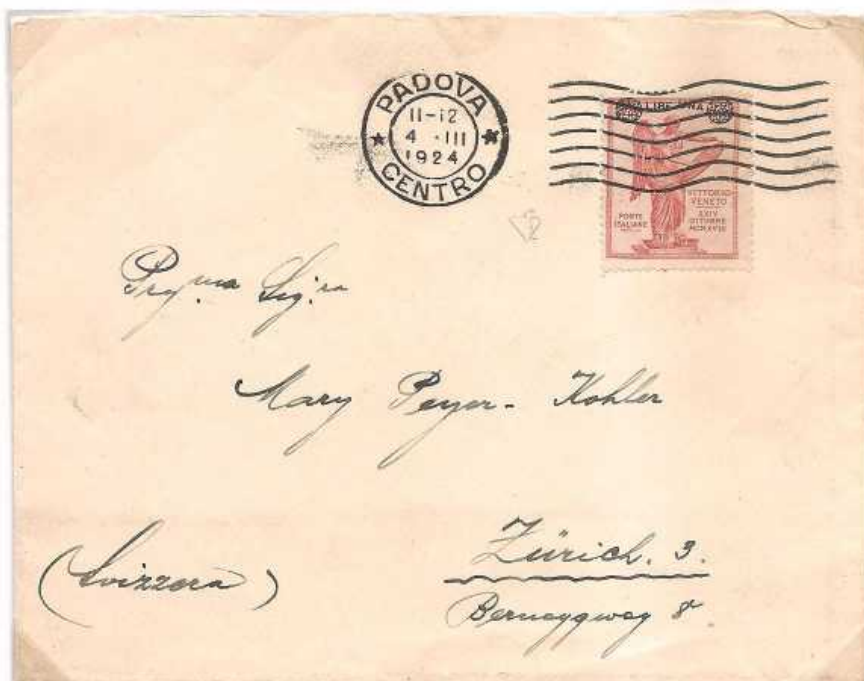 PADOVA
11-12
4 ·III
1924
CENTRO
LIRE UNA
VITTORIO
VENETO
XXIV
OTTOBRE
MCMXVIII
POSTE
ITALIANE
Preg.ma Sig.ra
Mary Peyer - Kohler
Zürich. 3.
(Svizzera)
Berneggweg 8.